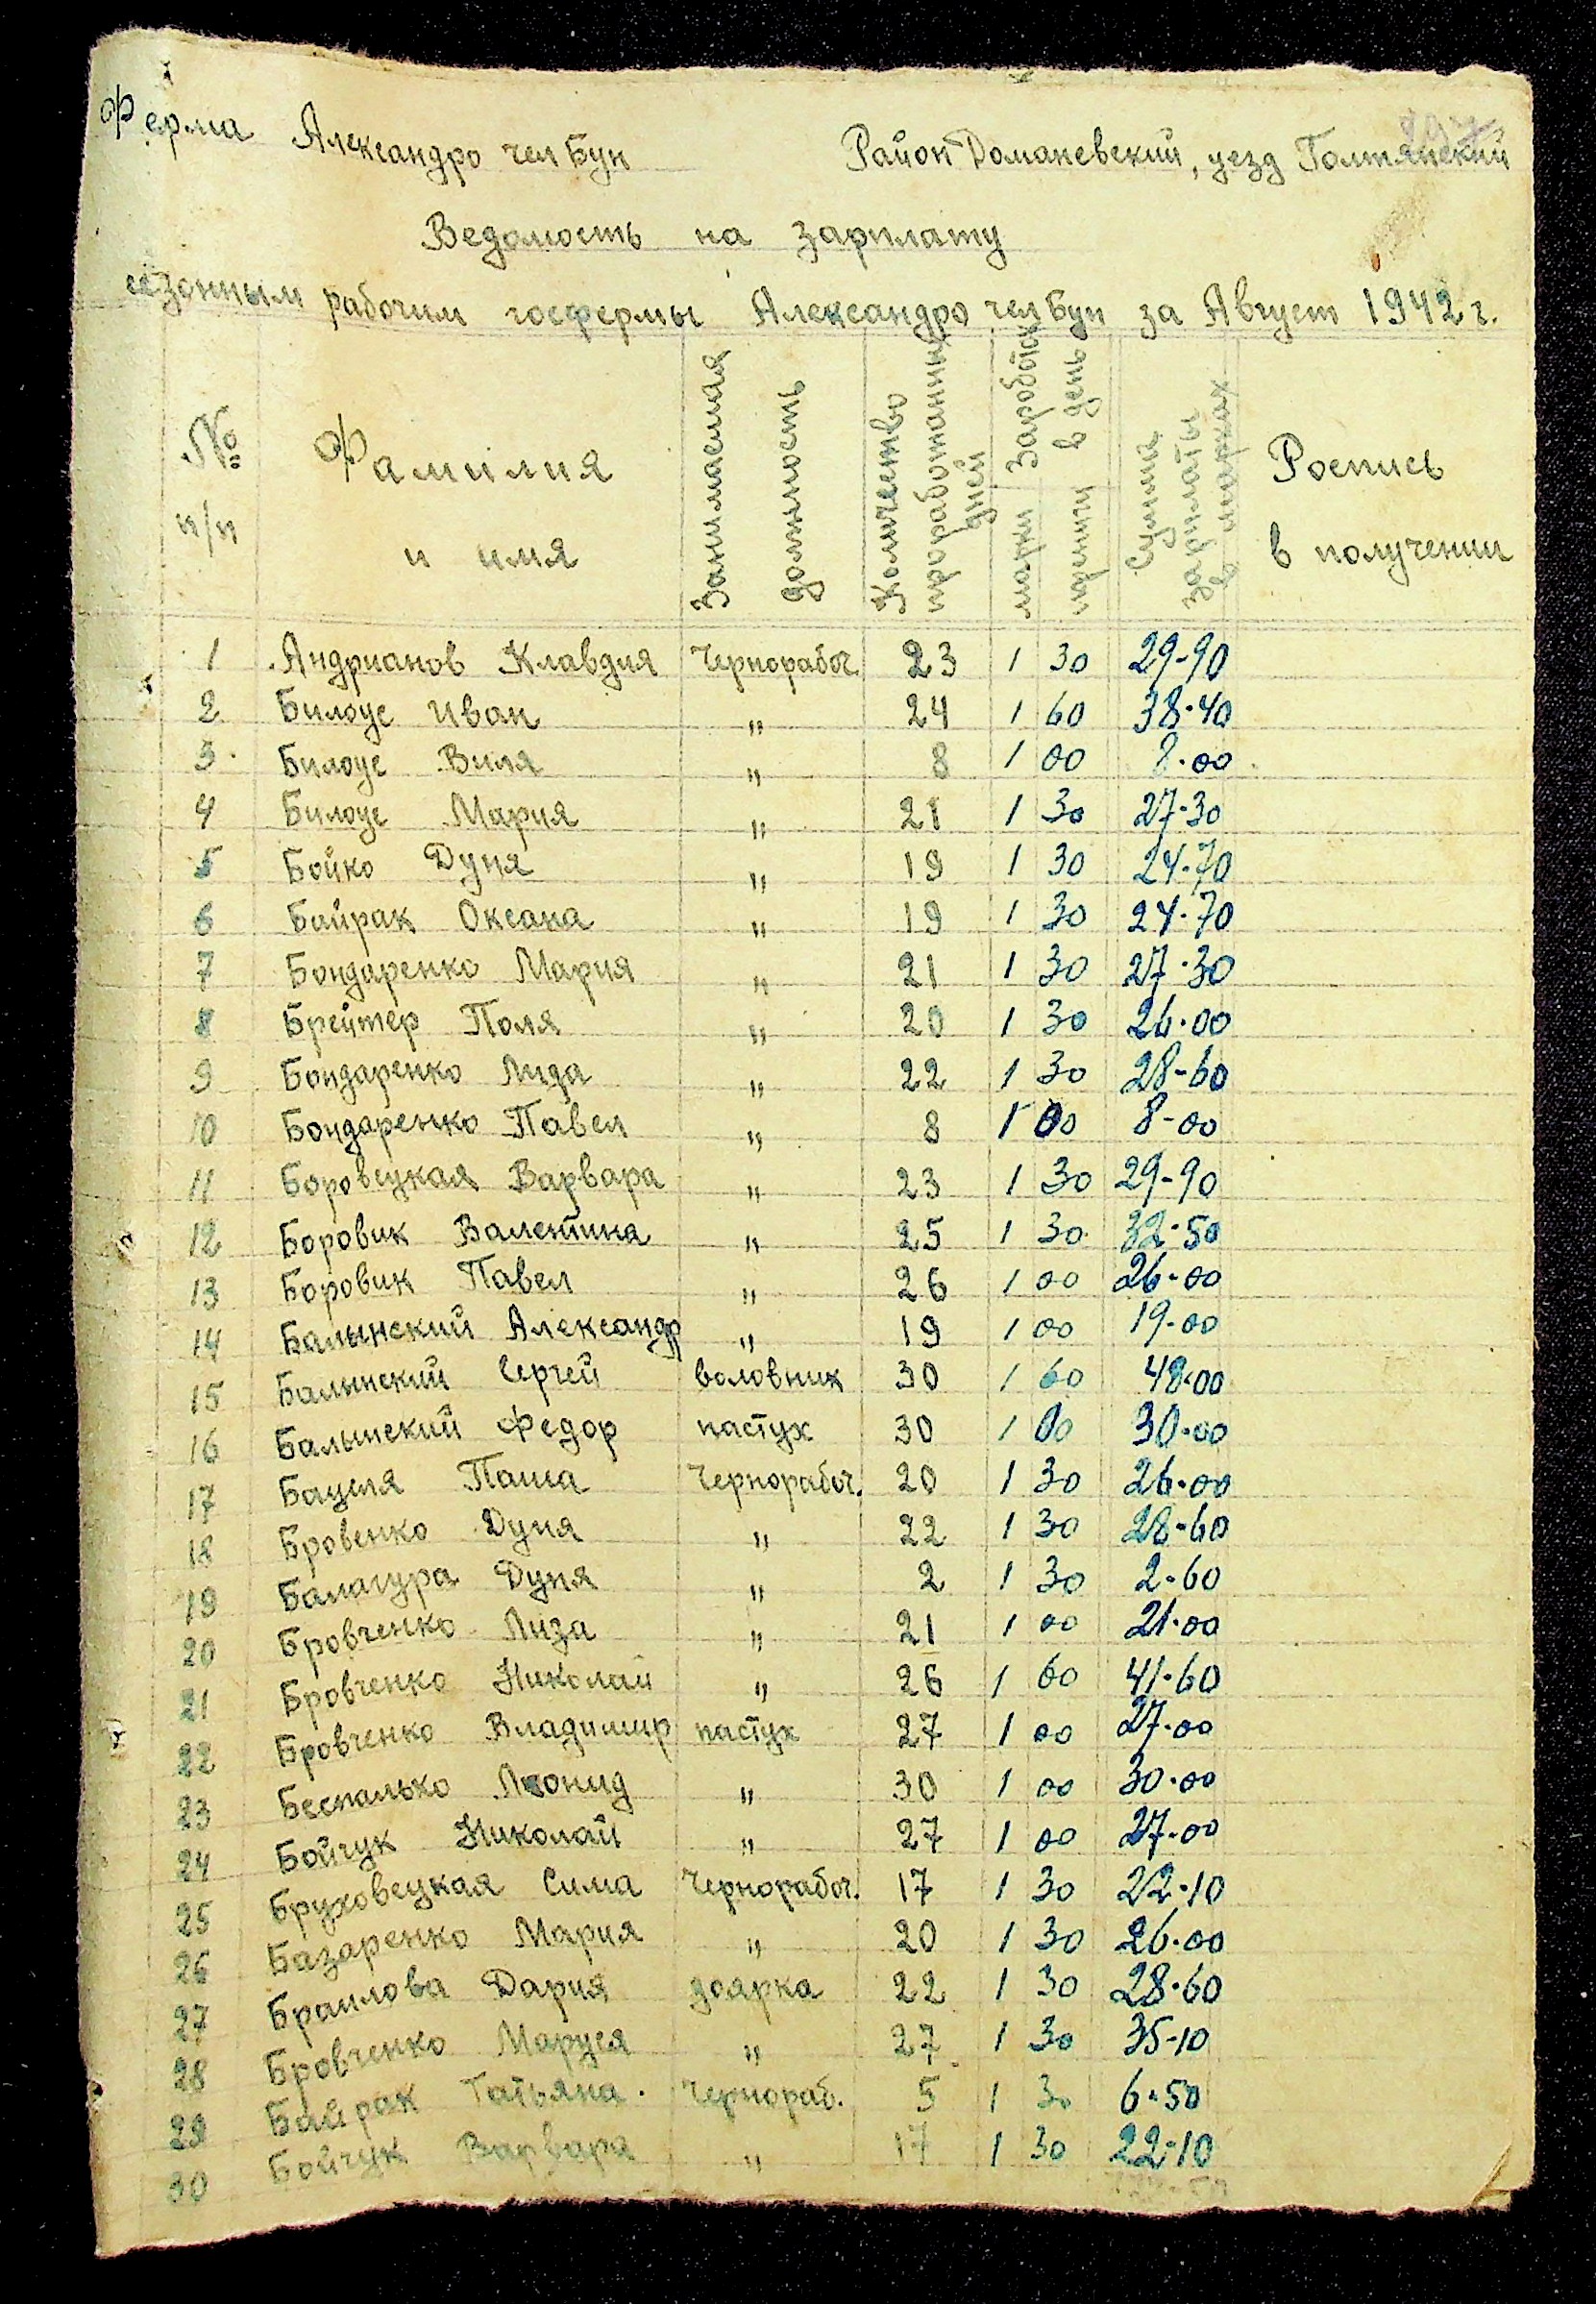 Ферма Александро чел Бун Район Доманевский, уезд Голтянский
Ведомость на зарплату
сезонным рабочим госфермы Александро чел Бун за Август 1942 г.
№ п/п Фамилия и имя Занимаемая должность Количество проработанных дней Заработок в день марки пфениги Сумма зарплаты в марках Роспись в получении
1 Андрианов Клавдия Чернорабоч. 23 1 30 29-90
2 Билоус Иван " 24 1 60 38-40
3 Билоус Виля " 8 1 00 8-00
4 Билоус Мария " 21 1 30 27-30
5 Бойко Дуня " 19 1 30 24-70
6 Байрак Оксана " 19 1 30 24-70
7 Бондаренко Мария " 21 1 30 27-30
8 Брейтер Поля " 20 1 30 26-00
9 Бондаренко Лида " 22 1 30 28-60
10 Бондаренко Павел " 8 1 00 8-00
11 Боровецкая Варвара " 23 1 30 29-90
12 Боровик Валентина " 25 1 30 32-50
13 Боровик Павел " 26 1 00 26-00
14 Балынский Александр " 19 1 00 19-00
15 Балынский Сергей воловник 30 1 60 48-00
16 Балынский Федор пастух 30 1 00 30-00
17 Бацуля Паша Чернорабоч. 20 1 30 26-00
18 Бровенко Дуня " 22 1 30 28-60
19 Балагура Дуня " 2 1 30 2-60
20 Бровченко Лиза " 21 1 00 21-00
21 Бровченко Николай " 26 1 60 41-60
22 Бровченко Владимир пастух 27 1 00 27-00
23 Беспалько Леонид " 30 1 00 30-00
24 Бойчук Николай " 27 1 00 27-00
25 Бруховецкая Сима Чернорабоч. 17 1 30 22-10
26 Базаренко Мария " 20 1 30 26-00
27 Браилова Дария доярка 22 1 30 28-60
28 Бровченко Маруся " 27 1 30 35-10
29 Байрак Татьяна. Чернораб. 5 1 30 6-50
30 Бойчук Варвара " 17 1 30 22-10